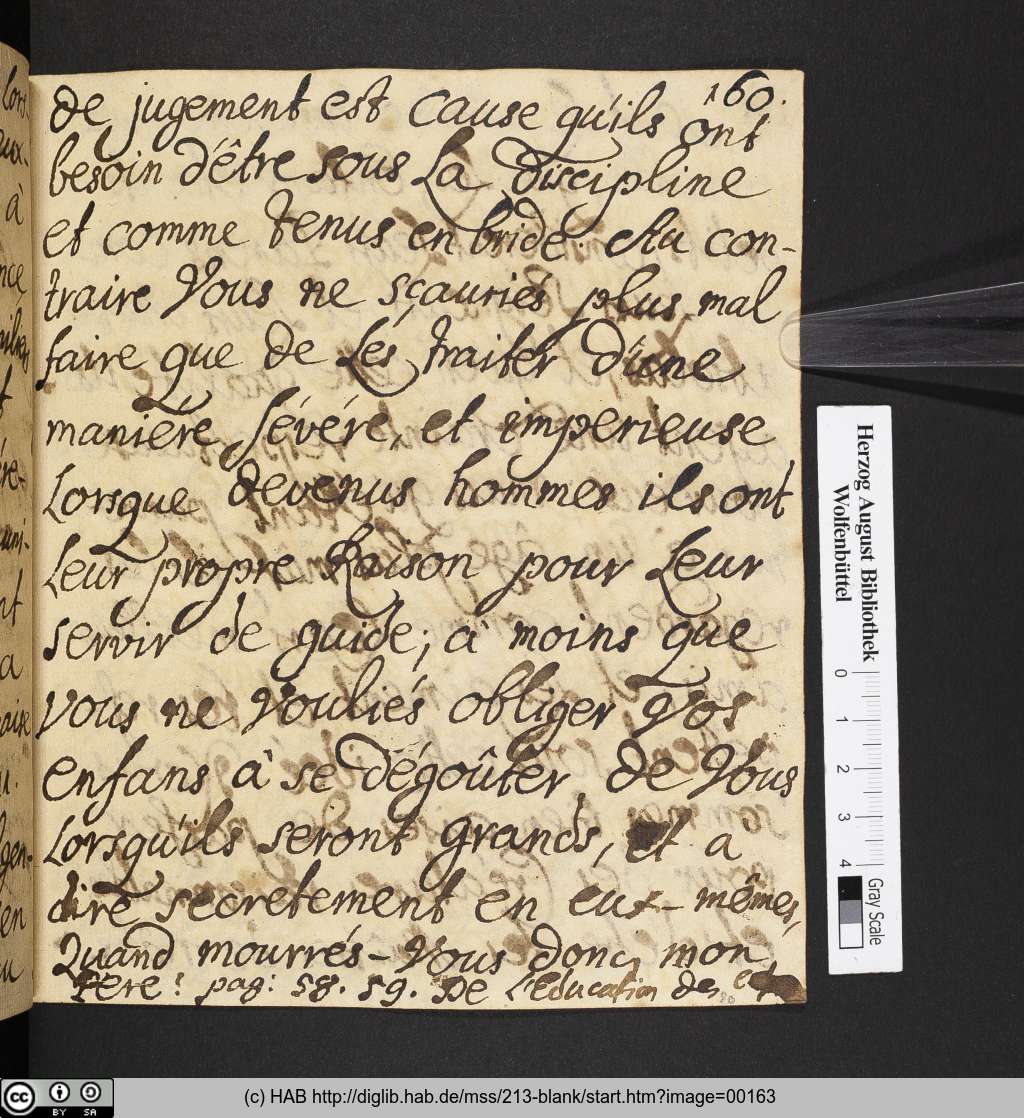 160.
de jugement est cause qu'ils ont
besoin d'être sous La Discipline
et comme tenus en bride. Au con-
traire Vous ne sçauriés plus mal
faire que de Lés traiter d'une
maniére sévére, et imperieuse
Lorsque devenus hommes ils ont
Leur propre Raison pour Leur
servir de guide; à moins que
vous ne vouliés obliger Vos
enfans à se dégoûter de Vous
Lorsqu'ils seront grands, et a
dire secretement en eux-mêmes,
Quand mourrés-Vous donc, mon
Pére! pag: 58. 59. De l'Education des
Herzog August Bibliothek
Wolfenbüttel
0 1 2 3 4
Gray Scale
cc BY SA
(c) HAB http://diglib.hab.de/mss/213-blank/start.htm?image=00163